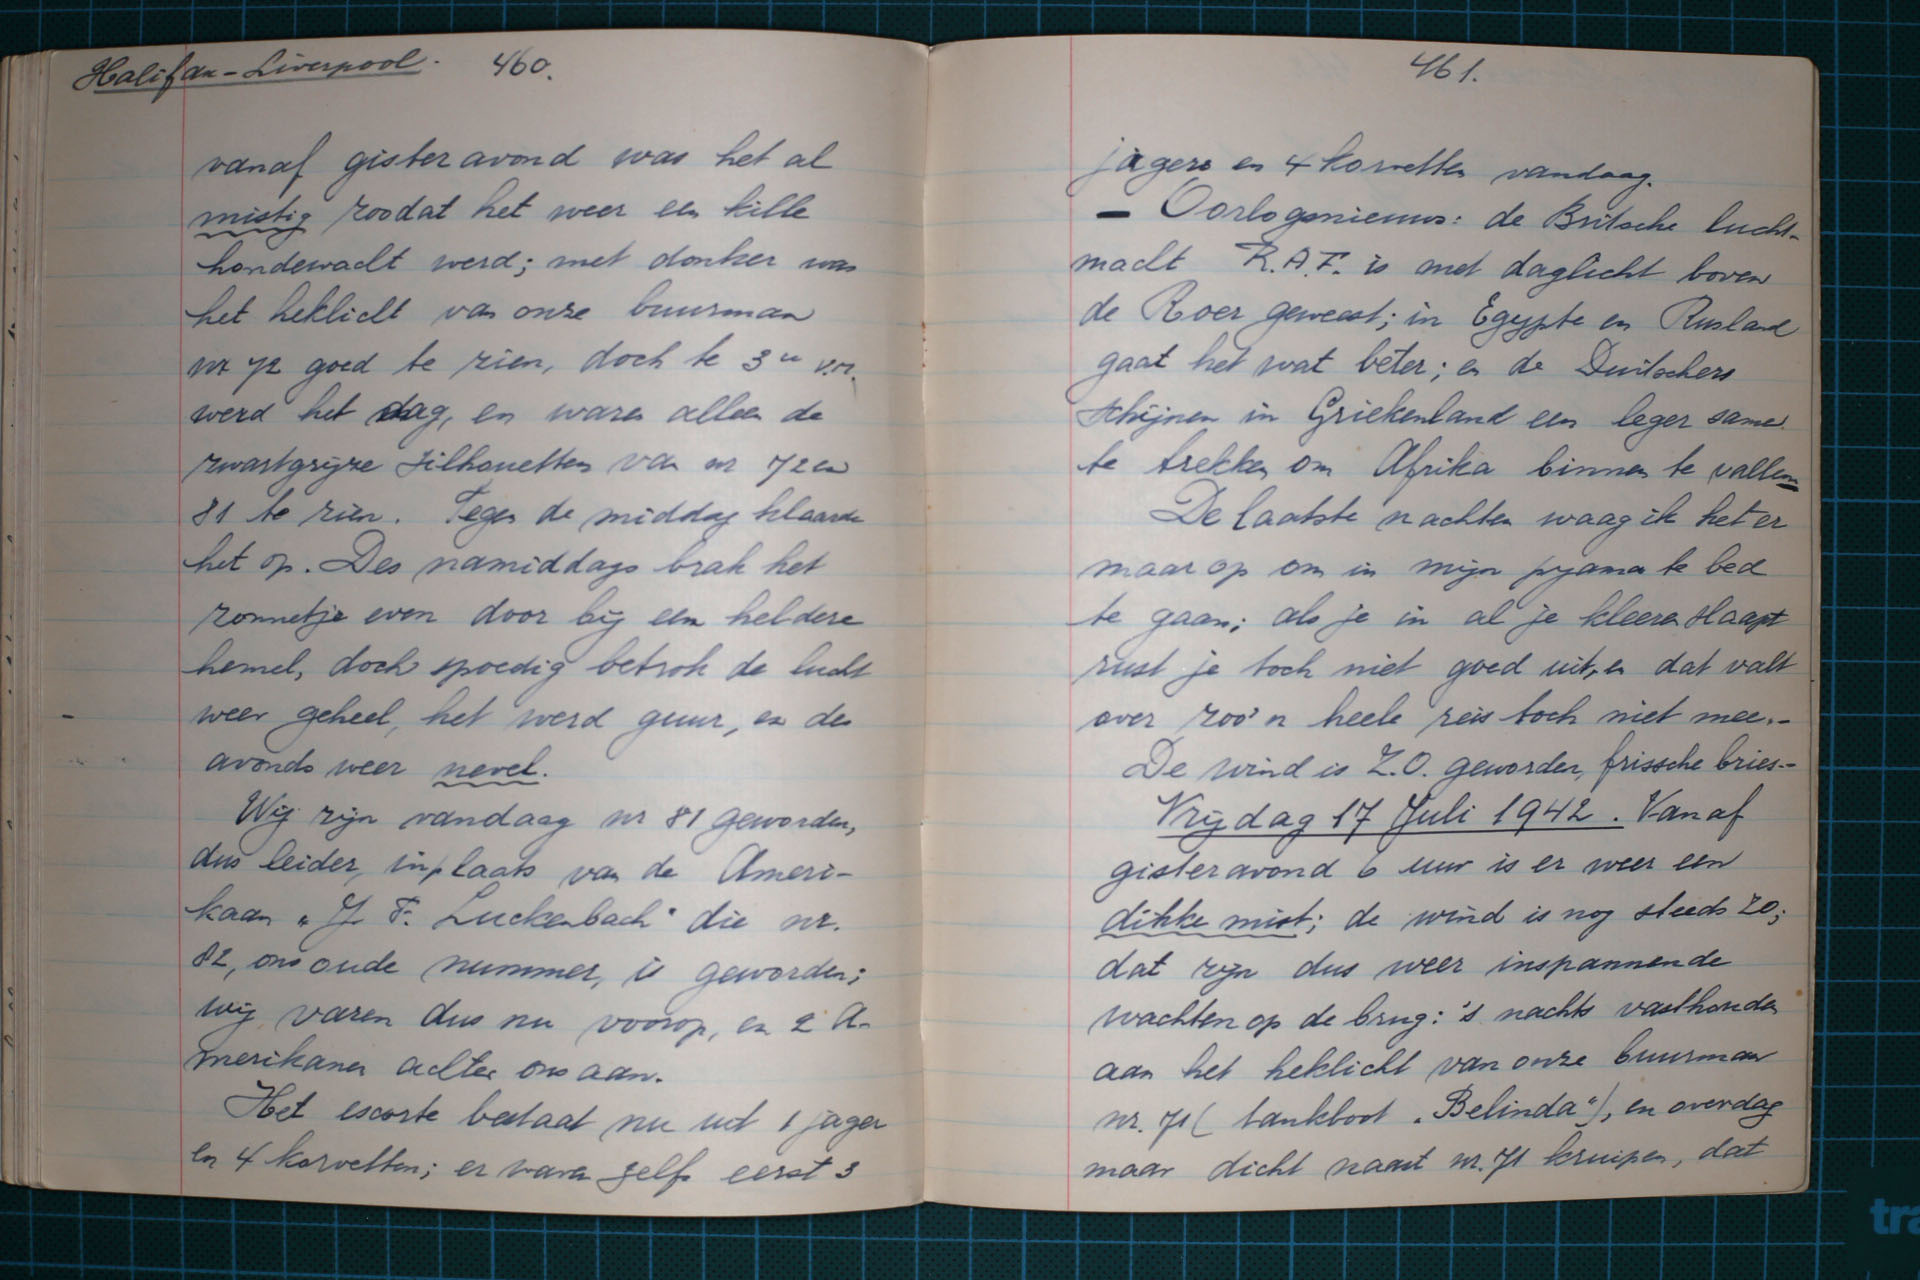 Halifax - Liverpool. 460.
vanaf gisteravond was het al
mistig zoodat het weer een kille
hondewacht werd; met donker was
het heklicht van onze buurman
nr 72 goed te zien, doch te 3 u v.m.
werd het dag, en waren alleen de
zwartgrijze silhouetten van nr 72 en
81 te zien. Tegen de middag klaarde
het op. Des namiddags brak het
zonnetje even door bij een heldere
hemel, doch spoedig betrok de lucht
weer geheel, het werd guur, en des
avonds weer nevel.
Wij zijn vandaag nr 81 geworden,
dus leider, inplaats van de Ameri-
kaan "J. F. Luckenbach" die nr.
82, ons oude nummer, is geworden;
wij varen dus nu voorop, en 2 A-
merikanen achter ons aan.
Het escorte bestaat nu uit 1 jager
en 4 korvetten; er waren zelfs eerst 3
461.
jagers en 4 korvetten vandaag.
- Oorlogsnieuws: de Britsche lucht-
macht R.A.F. is met daglicht boven
de Roer geweest; in Egypte en Rusland
gaat het wat beter; en de Duitschers
schijnen in Griekenland een leger samen
te trekken om Afrika binnen te vallen
De laatste nachten waag ik het er
maar op om in mijn pyama te bed
te gaan; als je in al je kleeren slaapt
rust je toch niet goed uit, en dat valt
over zoo'n heele reis toch niet mee.-
De wind is Z.O. geworden, frissche bries.-
Vrijdag 17 Juli 1942. Vanaf
gisteravond 6 uur is er weer een
dikke mist; de wind is nog steeds ZO;
dat zijn dus weer inspannende
wachten op de brug: 's nachts vasthouden
aan het heklicht van onze buurman
nr. 71 ( tankboot "Belinda"), en overdag
maar dicht naast nr. 71 kruipen, dat
tra